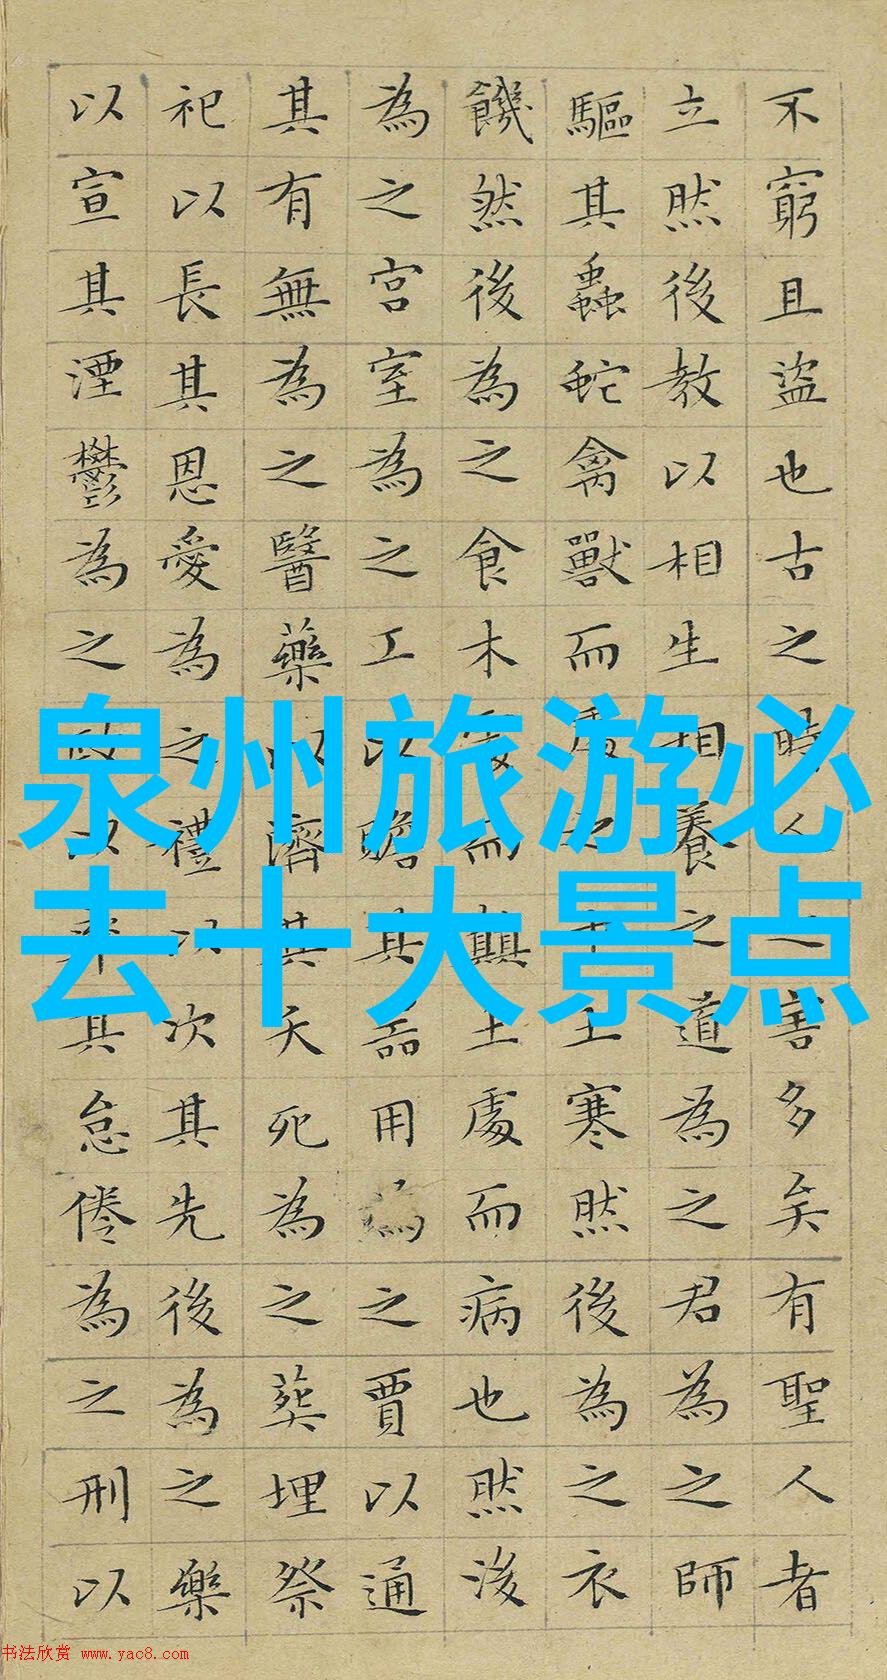 不窮且盜也古之時人之害多矣有聖人者
立然後教以相生相養之道為之君為之師
驅其蟲蛇禽獸而處之中土寒然後為之衣
饑然後為之食木處而顛土處而病也然後
為之宮室為之工以贍其器用為之賈以通
其有無為之醫藥以濟其夭死為之葬埋祭
祀以長其恩愛為之禮以次其先後為之樂
以宣其湮鬱為之政以率其怠倦為之刑以
泉州旅游必
去十大景点
书法欣赏 www.yac8.com